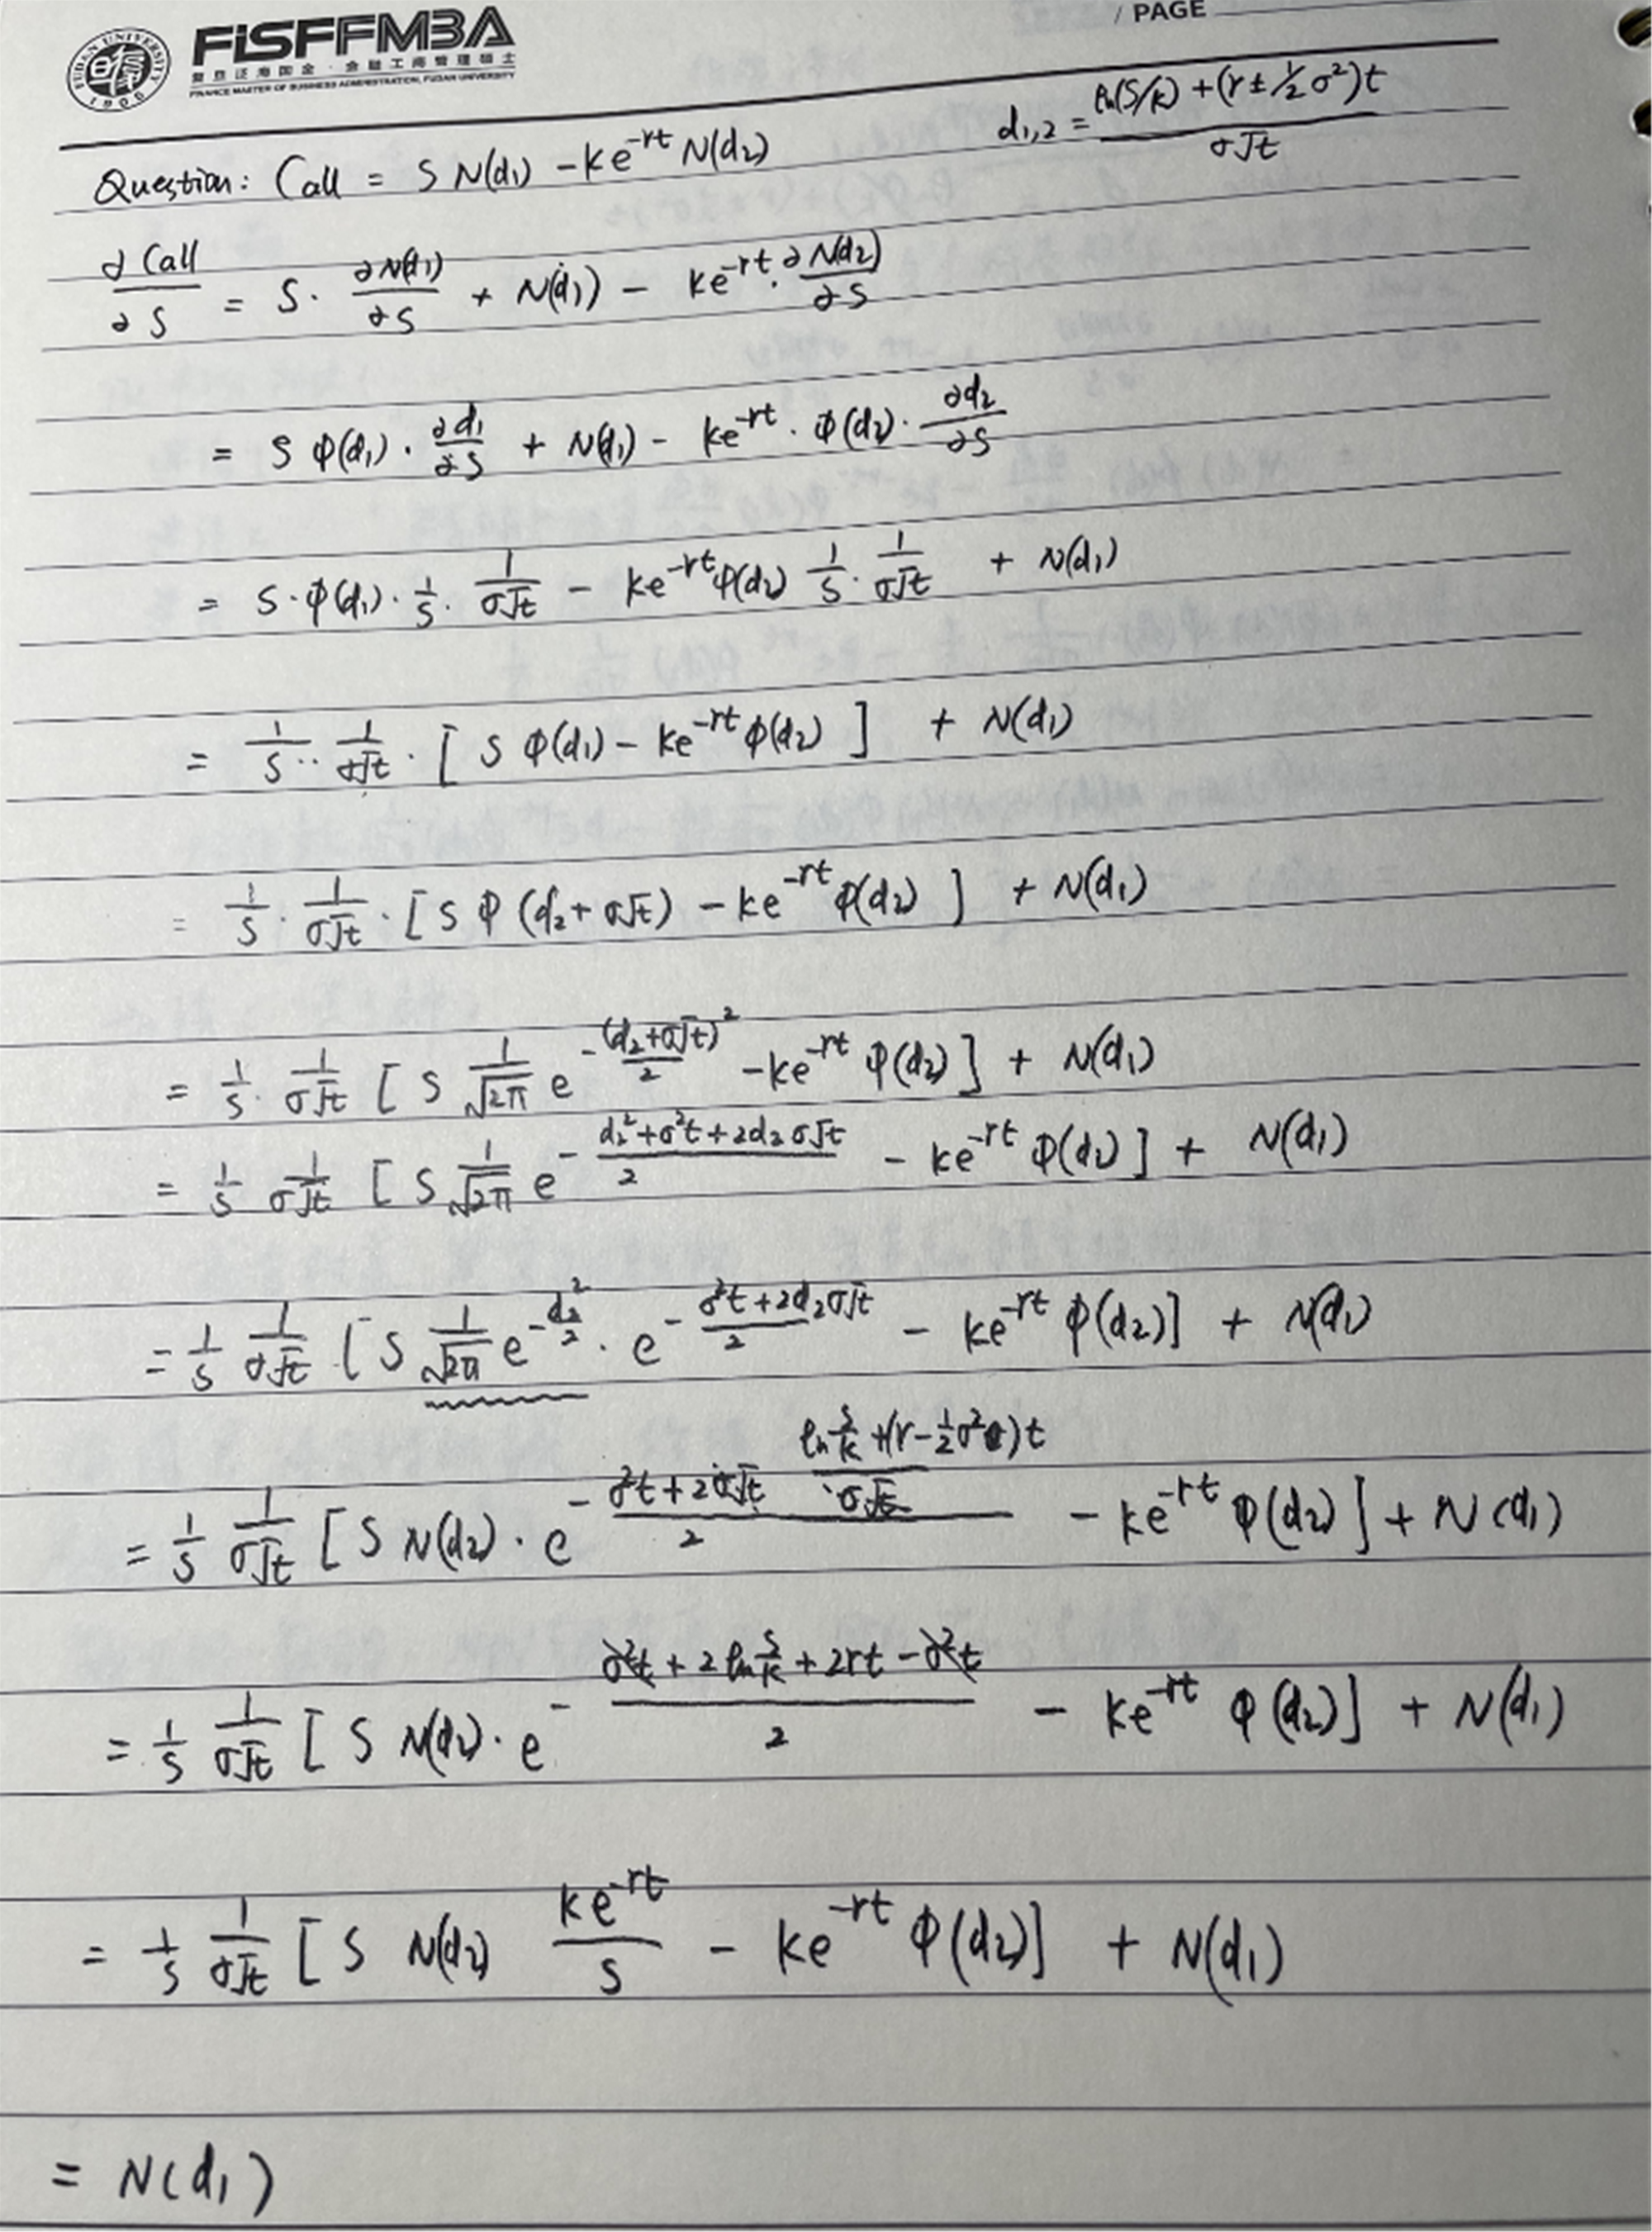 FISFFMBA
复旦泛海国金·金融工商管理硕士
FINANCE MASTER OF BUSINESS ADMINISTRATION, FUDAN UNIVERSITY
/ PAGE
Question: Call = S N(d₁) - Ke^{-rt} N(d₂)    d₁,₂ = \frac{ln(S/K) + (r ± ½σ²)t}{σ√t}
\frac{∂Call}{∂S} = S · \frac{∂N(d₁)}{∂S} + N(d₁) - Ke^{-rt} · \frac{∂N(d₂)}{∂S}
= S φ(d₁) · \frac{∂d₁}{∂S} + N(d₁) - Ke^{-rt} · φ(d₂) · \frac{∂d₂}{∂S}
= S · φ(d₁) · \frac{1}{S} · \frac{1}{σ√t} - Ke^{-rt} φ(d₂) \frac{1}{S} · \frac{1}{σ√t} + N(d₁)
= \frac{1}{S} · \frac{1}{σ√t} · [S φ(d₁) - Ke^{-rt} φ(d₂)] + N(d₁)
= \frac{1}{S} · \frac{1}{σ√t} · [S φ(d₂ + σ√t) - Ke^{-rt} φ(d₂)] + N(d₁)
= \frac{1}{S} · \frac{1}{σ√t} [S \frac{1}{√2π} e^{-\frac{(d₂+σ√t)²}{2}} - Ke^{-rt} φ(d₂)] + N(d₁)
= \frac{1}{S} \frac{1}{σ√t} [S \frac{1}{√2π} e^{-\frac{d₂²+σ²t+2d₂σ√t}{2}} - Ke^{-rt} φ(d₂)] + N(d₁)
= \frac{1}{S} \frac{1}{σ√t} [S \frac{1}{√2π} e^{-\frac{d₂²}{2}} · e^{-\frac{σ²t+2d₂σ√t}{2}} - Ke^{-rt} φ(d₂)] + N(d₁)
= \frac{1}{S} \frac{1}{σ√t} [S N(d₂) · e^{-\frac{σ²t+2σ√t \frac{ln\frac{S}{K}+(r-½σ²)t}{σ√t}}{2}} - Ke^{-rt} φ(d₂)] + N(d₁)
= \frac{1}{S} \frac{1}{σ√t} [S N(d₂) · e^{-\frac{σ²t+2ln\frac{S}{K}+2rt-σ²t}{2}} - Ke^{-rt} φ(d₂)] + N(d₁)
= \frac{1}{S} \frac{1}{σ√t} [S N(d₂) \frac{Ke^{-rt}}{S} - Ke^{-rt} φ(d₂)] + N(d₁)
= N(d₁)